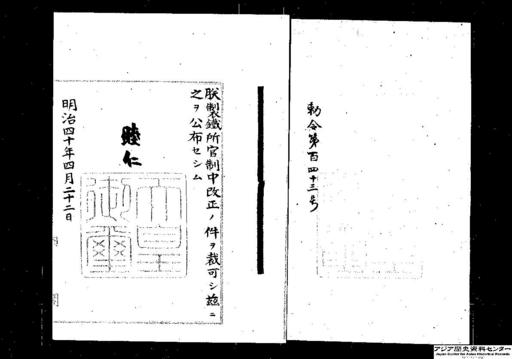 勅令第百四十三号
朕製鐵所官制中改正ノ件ヲ裁可シ茲ニ
之ヲ公布セシム
睦仁
天皇御璽
明治四十年四月二十二日
アジア歴史資料センター
Japan Center for Asian Historical Records